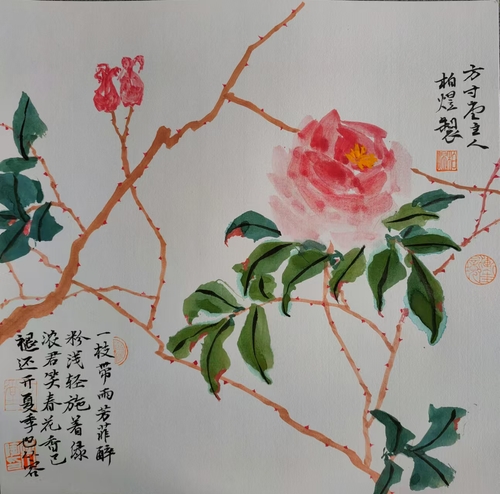 方寸堂主人
柏煜製
一枝带雨芳菲醉
粉浅轻施着绿
浓君笑春花香已
褪还开夏季也从容